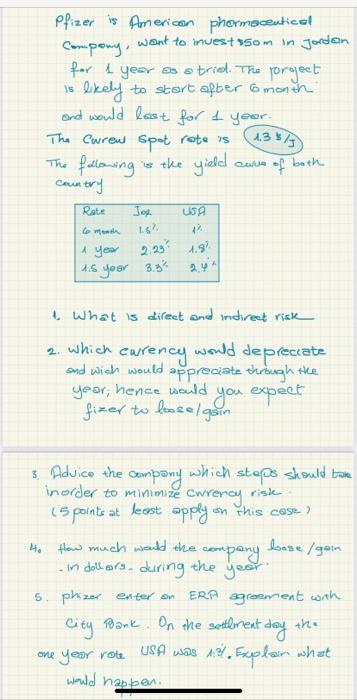 Pfizer is American pharmaceutical
Company, want to invest $50m in Jordan
for 1 year as a trial. The porject
is likely to start after 6 month
and would last for 1 year.
The Curew Spot rate is 1.3 $/J
The following is the yield curve of both
country
Rate Jor USA
6 month 1.5% 1%
1 year 2.23% 1.8%
1.5 year 3.3% 2.4%
1. What is direct and indirect risk
2. which currency would depreciate
and wich would appreciate through the
year; hence would you expect
fizer to loose/gain
3. Advice the company which steps should take
inorder to minimize currency risk.
(5 points at least apply on this case)
4. How much would the company loose/gain
- in dollars - during the year.
5. phizer enter an ERA agreement with
City Bank. On the setlment day the
one year rate USA was 1.3%. Explain what
would happen.